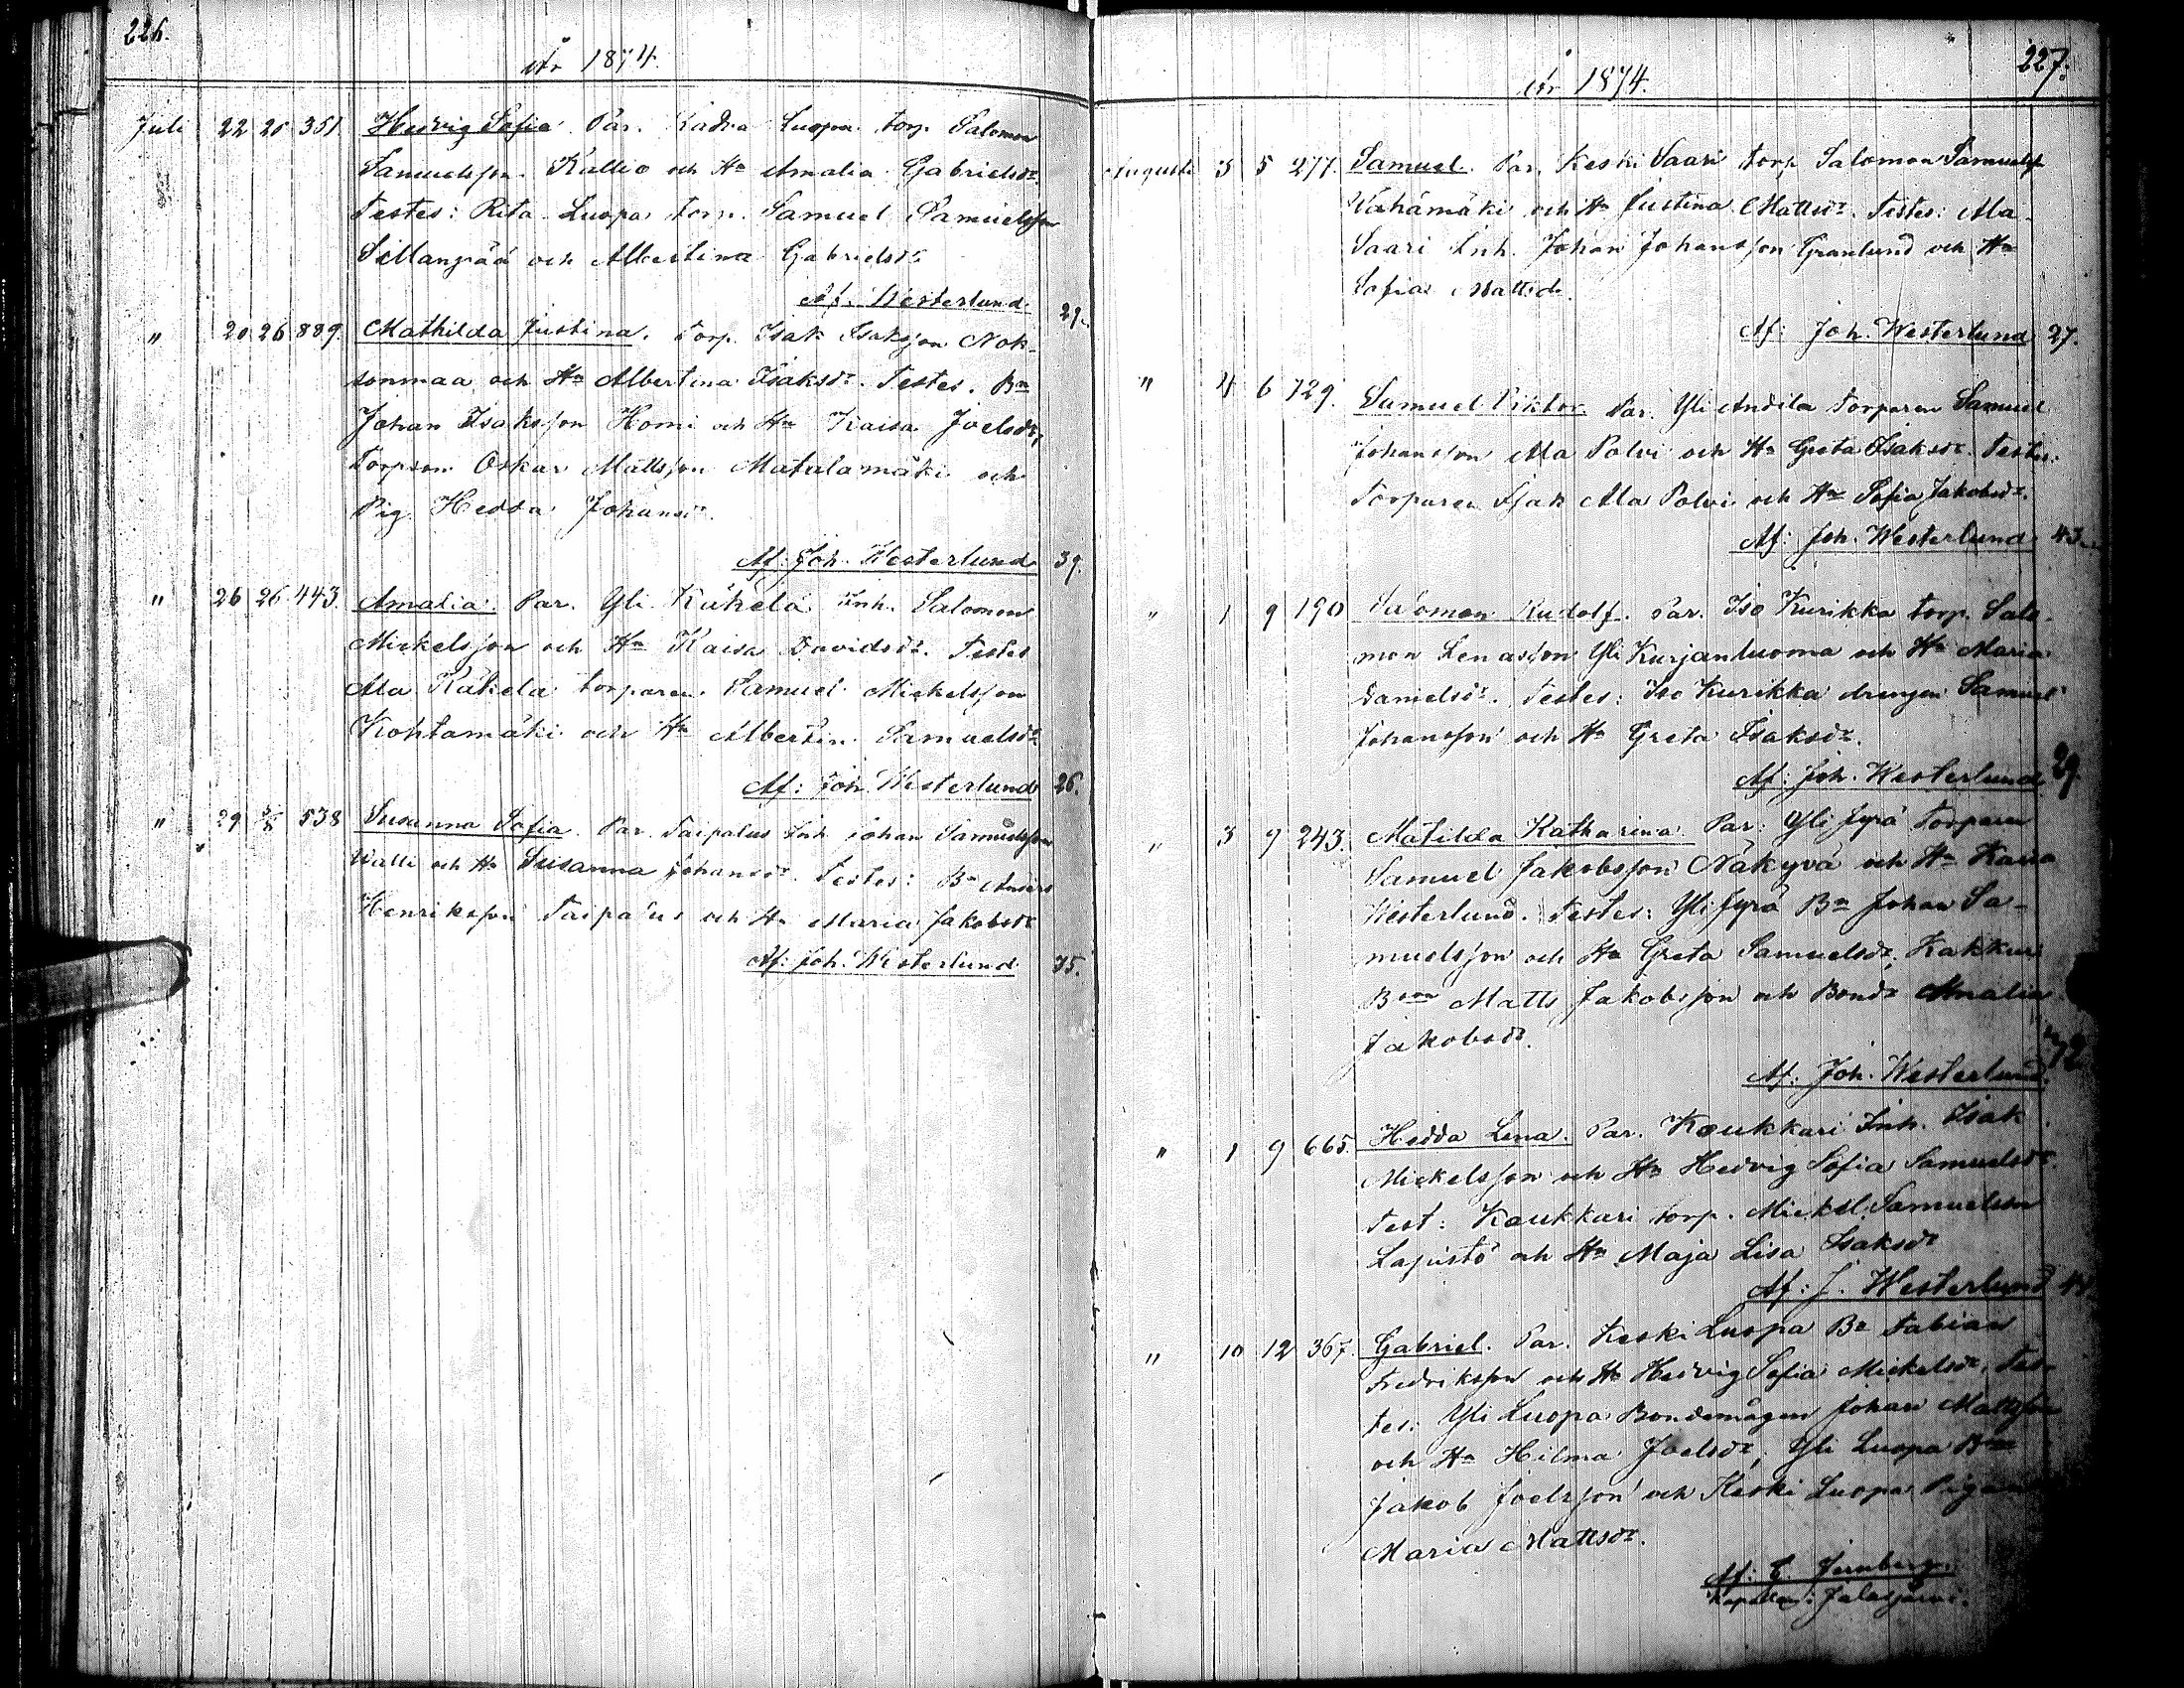 226.
År 1874.
Juli 22 25 351. Hedvig Sofia. Par. Luopa torp. Salomon
Samuelsson Kallio och Hu Amalia Gabrielsdr.
Testes: Rita Luopa torp. Samuel Samuelsson
Sillanpää och Albertina Gabrielsdr.
Af. Westerlund. 29.
" 20 26 889. Mathilda Justina. Torp. Isak Isaksson Nok-
sonmaa och Hu Albertina Isaksdr. Testes. Bn
Johan Isaksson Homi och Hu Kaisa Joelsdr,
Torpson Oskar Mattsson Matalamäki och
Pig. Hedda Johansdr.
Af: Joh. Westerlund 39.
" 26 26 443. Amalia. Par. Yli Käkelä Inh. Salomon
Mickelsson och Hu Kaisa Davidsdr. Testes
Ala Käkelä torparen Samuel Mickelsson
Kohtamäki och Hu Albertin. Samuelsdr
Af: Joh Westerlund 26.
" 29 2/8 538 Susanna Sofia. Par. Taipalus Inh Johan Samuelsson
Walli och Hu Susanna Johansdr. Testes: Bn Anders
Henriksson Taipalus och Hu Maria Jakobsdr
Af: Joh. Westerlund 35.
227.
År 1874.
Augusti 3 5 277. Samuel. Par. Keski Saari torp Salomon Samuelss
Wähämäki och Hu Justina Mattsdr. Testes: Ala
Saari Inh. Johan Johansson Granlund och Hu
Sofia Mattsdr.
Af: Joh. Westerlund 27.
" 4 6 729. Samuel Viktor. Par. Yli Andila Torparen Samuel
Johansson Ala Polvi och Hu Greta Isaksdr. Testes:
Torparen Isak Ala Polvi och Hu Sofia Jakobsdr.
Af: Joh. Westerlund 43
" 1 9 190 Salomon Rudolf. Par. Iso Kurikka torp. Salo-
mon Lenasson Yli Kurjanluoma och Hu Maria
Danielsdr. Testes: Iso Kurikka drengen Samuel
Johansson och Hu Greta Isaksdr.
Af: Joh. Westerlund 29.
" 3 9 243. Matilda Katharina. Par: Yli Jyrä Torparen
Samuel Jakobsson Näkyvä och Hu Kaisa
Westerlund. Testes: Yli Jyrä Bn Johan Sa-
muelsson och Hu Greta Samuelsdr, Kakkuri
Bson Matts Jakobsson och Bondr Amalia
Jakobsdr.
Af: Joh. Westerlund.
" 1 9 665. Hedda Lena. Par. Koukkari Inh. Isak
Mickelsson och Hu Hedvig Sofia Samuelsdr.
Test: Koukkari torp. Mickel Samuelson
Lapistö och Hu Maja Lisa Isaksdr
Af: J. Westerlund
" 10 12 367. Gabriel. Par. Keski Luopa Bn Fabian
Fredriksson och Hu Hedvig Sofia Mickelsdr. Tes-
tes: Yli Luopa Bondemågen Johan Mattsson
och Hu Hilma Joelsdr, Yli Luopa
Jakob Joelsson och Keski Luopa Pigan
Maria Mattsdr.
Af: E. Jernberg.
Kapellan i Jalasjärvi.